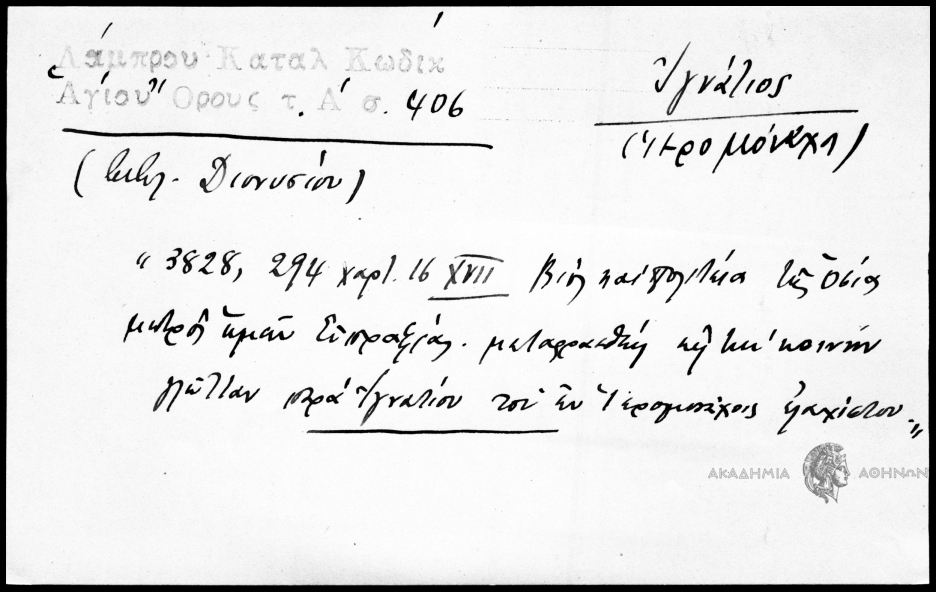 Λάμπρου Καταλ Κωδικ
Ἁγίου Ὄρους τ. Α΄ σ. 406
Ἰγνάτιος
(ἱερομόναχος)
(βιβλ. Διονυσίου)
"3828, 294 χαρτ. 16 XVII Βίος καὶ πολιτεία τῆς ὁσίας
μητρὸς ἡμῶν Εὐπραξίας. μεταφρασθεὶς εἰς τὴν κοινὴν
γλῶτταν παρὰ Ἰγνατίου τοῦ ἐν Ἱερομονάχοις ἐλαχίστου."
ΑΚΑΔΗΜΙΑ ΑΘΗΝΩΝ